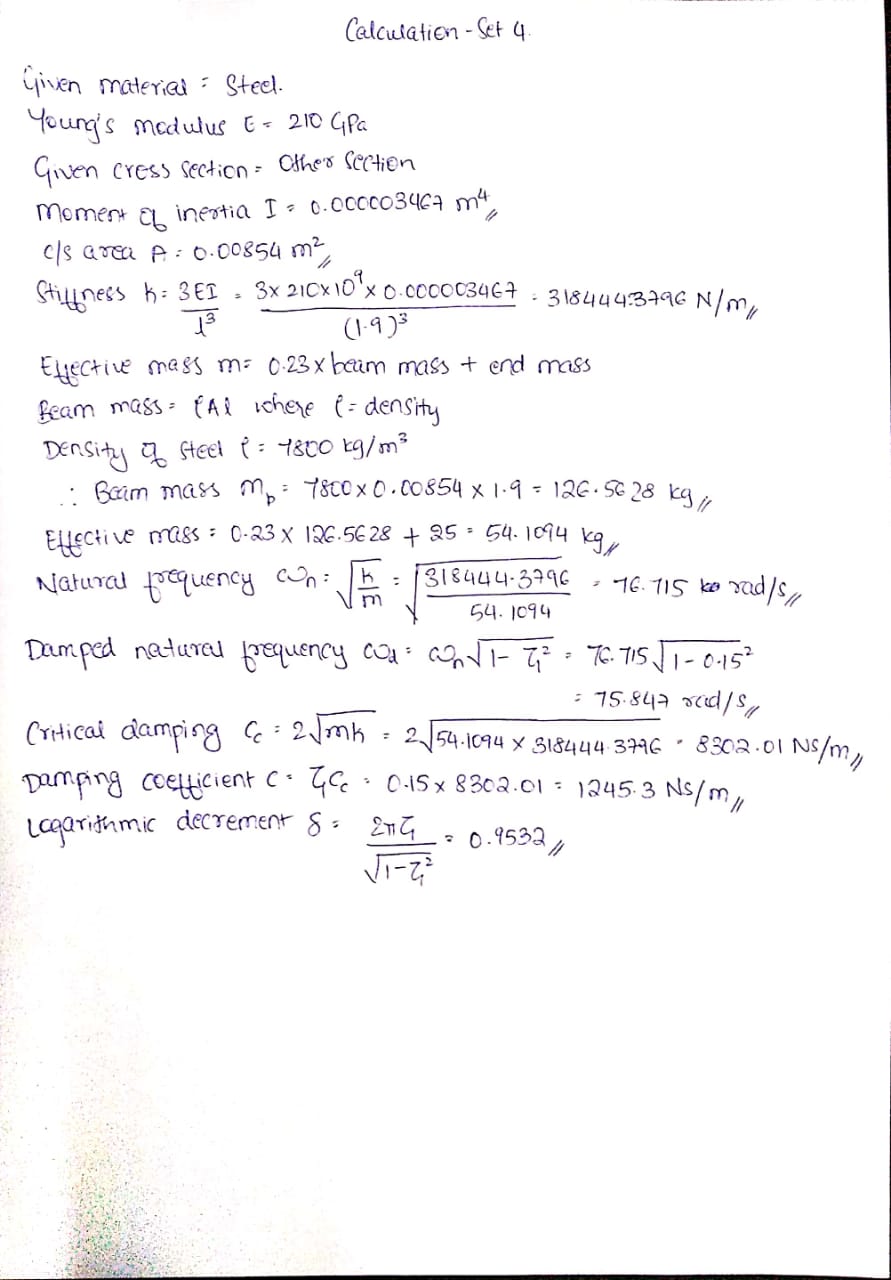 Calculation - Set 4.
Given material = Steel.
Young's modulus E = 210 GPa
Given cross section = Other Section
Moment of inertia I = 0.000003467 m⁴
c/s area A = 0.00854 m²
Stiffness k = 3EI/l³ = 3x 210x10⁹ x 0.000003467/(1.9)³ = 318444.3796 N/m
Effective mass m = 0.23 x beam mass + end mass
Beam mass = ρAl where ρ = density
Density of steel ρ = 7800 kg/m³
∴ Beam mass m_b = 7800 x 0.00854 x 1.9 = 126.5628 kg
Effective mass = 0.23 x 126.5628 + 25 = 54.1094 kg
Natural frequency ωn = √(k/m) = √(318444.3796/54.1094) = 76.715 rad/s
Damped natural frequency ωd = ωn√(1-ζ²) = 76.715√(1-0.15²)
= 75.847 rad/s
Critical damping Cc = 2√mk = 2√(54.1094 x 318444.3796) = 8302.01 NS/m
Damping coefficient C = ζCc = 0.15 x 8302.01 = 1245.3 NS/m
Logarithmic decrement δ = 2πζ/√(1-ζ²) = 0.9532